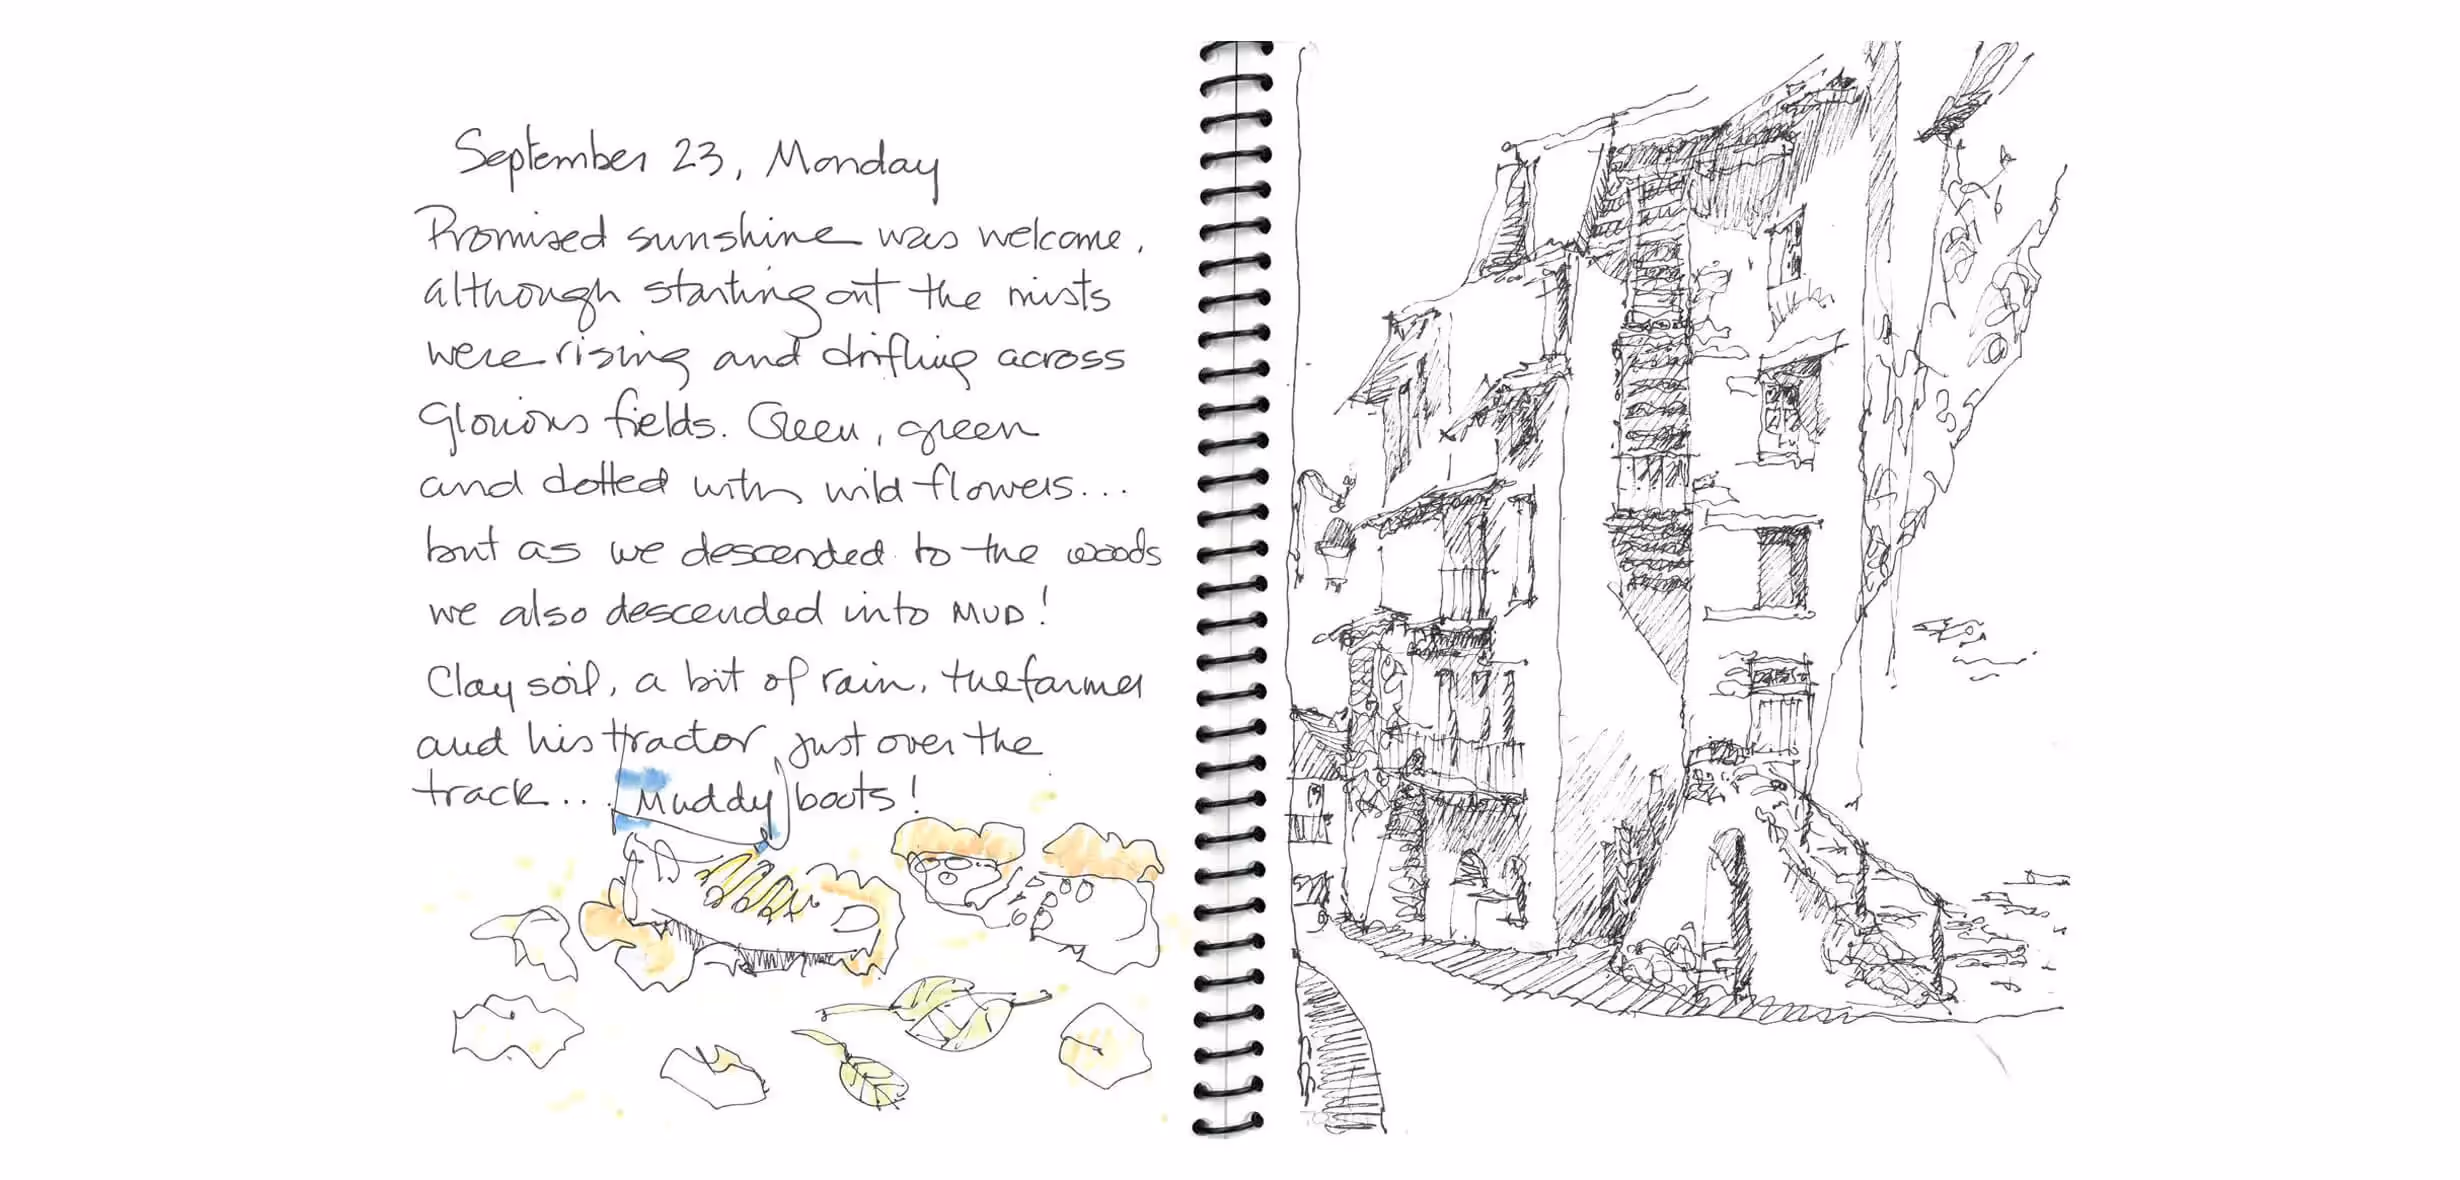 September 23, Monday
Promised sunshine was welcome,
although starting out the mists
were rising and drifting across
glorious fields. Green, green
and dotted with wild flowers...
but as we descended to the woods
we also descended into MUD!
Clay soil, a bit of rain, the farmer
and his tractor just over the
track... Muddy boots!